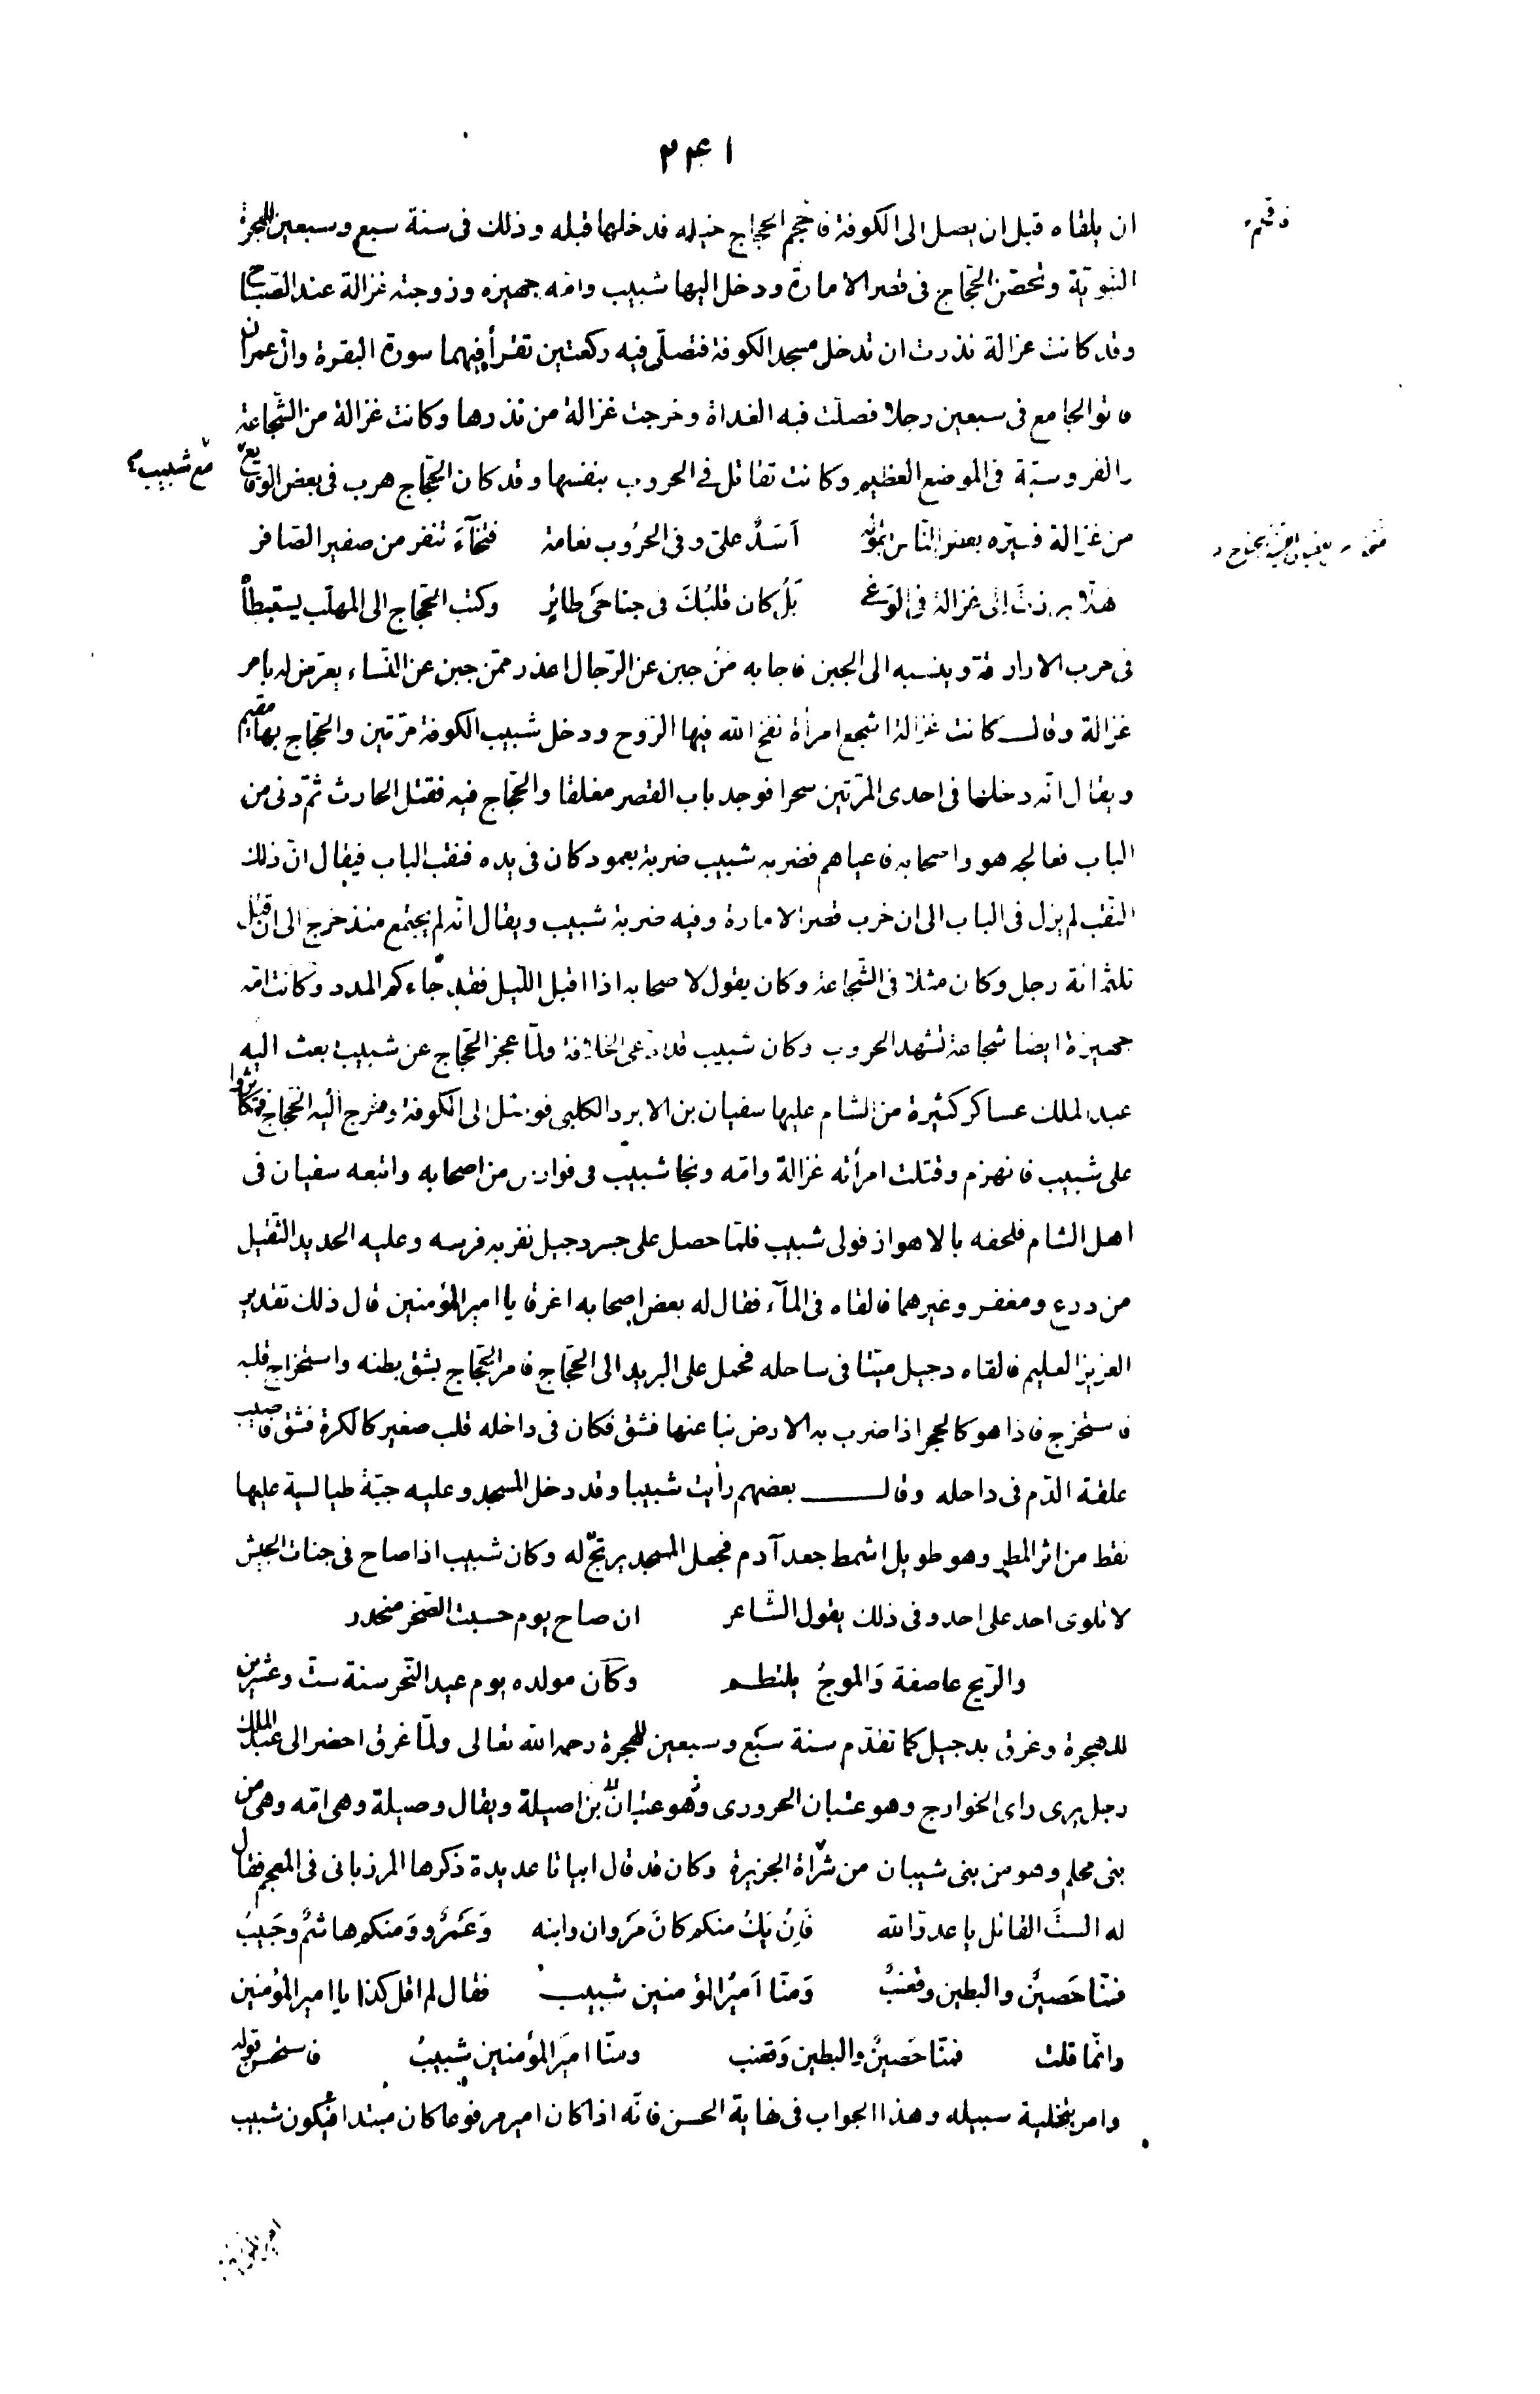 ٢٤١
ان يلقاه قبل ان يصل الى الكوفة فاقحم الحجاج خيله فدخلها قبله وذلك فى سنة سبع وسبعين للهجرة
النبويّة وتحصّن الحجّاج فى قصر الامارة ودخل اليها شبيب وامّه جهيزه وزوجته غزالة عند الصّباح
وقد كانت غزالة نذرت ان تدخل مسجد الكوفة فتصلّى فيه ركعتين تقرأ فيهما سورة البقرة وآل عمران
فاتوا الجامع فى سبعين رجلا فصلّت فيه الغداة وخرجت غزالة من نذرها وكانت غزالة من الشّجاعة
والفروسيّة فى الموضع العظيم وكانت تقاتل فى الحروب بنفسها وقد كان الحجّاج هرب فى بعض الوقايع
مع شبيب
من غزالة فعيّره بعض النّاس بقوله اَسَدٌ علىّ وفى الحرُوب نعامة فتخآءَ تنفر من صفير الصّافر
هلّا برزتَ الى غزالة فى الوَغى بَلْ كان قلبُكَ فى جناحَى طائِرٍ وكتب الحجّاج الى المهلّب يستبطأ
فى حرب الازارقة وينسبه الى الجبن فاجابه مَنْ جبن عن الرّجال اعذر ممّن جبن عن النّساء يعرّض له بامر
غزالة وقال كانت غزالة اشجع امرأة نفخ الله فيها الرّوح ودخل شبيب الكوفة مرّتين والحجّاج بها مقيم
ويقال انّه دخلها فى احدى المرّتين سحرا فوجد باب القصر مغلقا والحجّاج فيه فقتل الحارث ثمّ دنى من
الباب فعالجه هو واصحابه فاعياهم فضربه شبيب ضربة بعمود كان فى يده فنقب الباب فيقال انّ ذلك
النّقب لم يزل فى الباب الى ان خرب قصر الامارة وفيه ضربة شبيب ويقال انّه لم يجتمع منذ خرج الى ان قتل
ثلثمائة رجل وكان مثلا فى الشّجاعة وكان يقول لاصحابه اذا اقبل اللّيل فقد جاءكم المدد وكانت امّه
جهيزة ايضا شجاعة تشهد الحروب وكان شبيب قد ادّعى الخلافة ولمّا عجز الحجّاج عن شبيب بعث اليه
عبد الملك عساكر كثيرة من الشام عليها سفيان بن الابرد الكلبى فوصل الى الكوفة وخرج اليه الحجّاج فتكاثروا
على شبيب فانهزم وقتلت امرأته غزالة وامّه ونجا شبيب فى فوارس من اصحابه واتبعه سفيان فى
اهل الشام فلحقه بالاهواز فولى شبيب فلمّا حصل على جسر دجيل نفر به فرسه وعليه الحديد الثّقيل
من درع ومغفر وغيرهما فالقاه فى المآء فقال له بعض اصحابه اغرقا يا امير المؤمنين قال ذلك تقدير
العزيز العليم فالقاه دجيل ميّتا فى ساحله فحمل على البريد الى الحجّاج فامر الحجّاج بشق بطنه واستخراج قلبه
فاستخرج فاذا هو كالحجر اذا ضرب به الارض نبا عنها فشق فكان فى داخله قلب صغير كالكرة فشق فاصيب
علقة الدّم فى داخله وقال بعضهم رأيت شبيبا وقد دخل المسجد وعليه جبّة طيالسية عليها
نقط من اثر المطر وهو طويل اشمط جعد آدم فجعل المسجد يرتجّ له وكان شبيب اذا صاح فى جنات الجيش
لا تلوى احد على احد وفى ذلك يقول الشّاعر ان صاح يوم حسبت الصّخر منحدر
والرّيح عاصفة وَالموجُ يلتطم وكان مولده يوم عيد النّحر سنة ستّ وعشرين
للهجرة وغرق بدجيل كما تقدّم سنة سَبع وسبعين للهجرة رحمه الله تعالى ولمّا غرق احضر الى عبد الملك
رجل يرى راى الخوارج وهو عتبان الحرورى وهُو عتبان بن اصيلة ويقال وصيلة وهى امّه وهى من
بنى محلم وهو من بنى شيبان من شراة الجزيرة وكان قد قال ابياتا عديدة ذكرها المرزبانى فى المعجم فقال
له الستَ القائل يا عدوّ الله فَاِنْ يَكُ منكم كانَ مَروان وابنه وَعَمْرٌو وَمنكم هاشمٌ وحَبيبُ
فمنّا حَصينٌ والبطين وقعنبٌ وَمنّا اَميرُ المؤمنين شبيب فقال لم اقل كذا يا امير المؤمنين
وانّما قلت فمنّا حَصينٌ والبطين وَقعنب ومنّا اميرَ المؤمنين شبيبُ فاستحسن قوله
وامر بتخلية سبيله وهذا الجواب فى نهاية الحسن فانّه اذا كان امير مرفوعا كان مبتدا فيكون شبيب